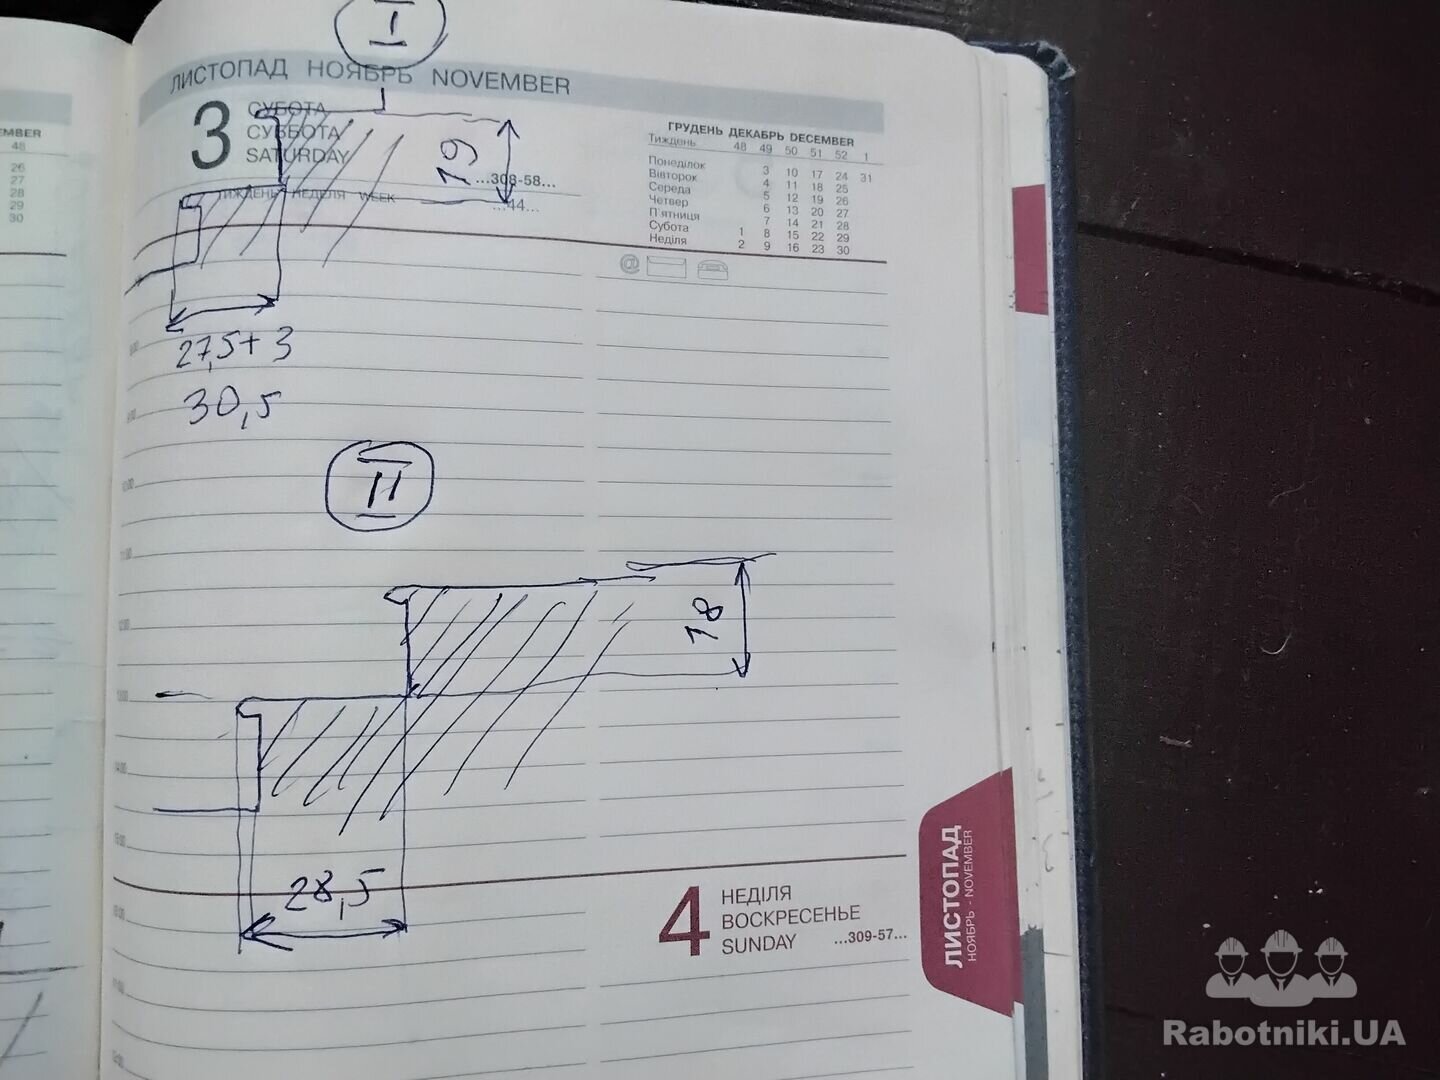 I
ЛИСТОПАД НОЯБРЬ NOVEMBER
3
СУБОТА
СУББОТА
SATURDAY
ТИЖДЕНЬ НЕДЕЛЯ WEEK
...308-58...
...44...
19
27,5+3
30,5
ГРУДЕНЬ ДЕКАБРЬ DECEMBER
Тиждень 48 49 50 51 52 1
Понеділок 3 10 17 24 31
Вівторок 4 11 18 25
Середа 5 12 19 26
Четвер 6 13 20 27
П'ятниця 7 14 21 28
Субота 1 8 15 22 29
Неділя 2 9 16 23 30
@
II
18
28,5
4
НЕДІЛЯ
ВОСКРЕСЕНЬЕ
SUNDAY
...309-57...
ЛИСТОПАД
НОЯБРЬ - NOVEMBER
EMBER
48
26
27
28
29
30
Rabotniki.UA